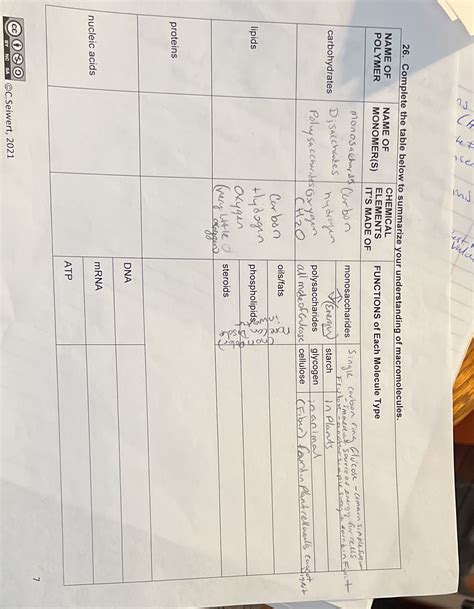 26. Complete the table below to summarize your understanding of macromolecules.
NAME OF POLYMER
NAME OF MONOMER(S)
CHEMICAL ELEMENTS IT'S MADE OF
FUNCTIONS of Each Molecule Type
carbohydrates
Monosaccharides
Disaccharides
Polysaccharides
Carbon
hydrogen
Oxygen
CH2O
monosaccharides
(Energy)
Single carbon ring Glucose - common simple
- immediate source of energy for cells
polysaccharides
all made of Glucose
starch
in Plants
glycogen
in animal
cellulose
(Fiber) found in Plant cell walls
lipids
Carbon
Hydogen
oxygen
(very little oxygen)
oils/fats
phospholipids
steroids
proteins
nucleic acids
DNA
mRNA
ATP
©C.Seiwert, 2021
7